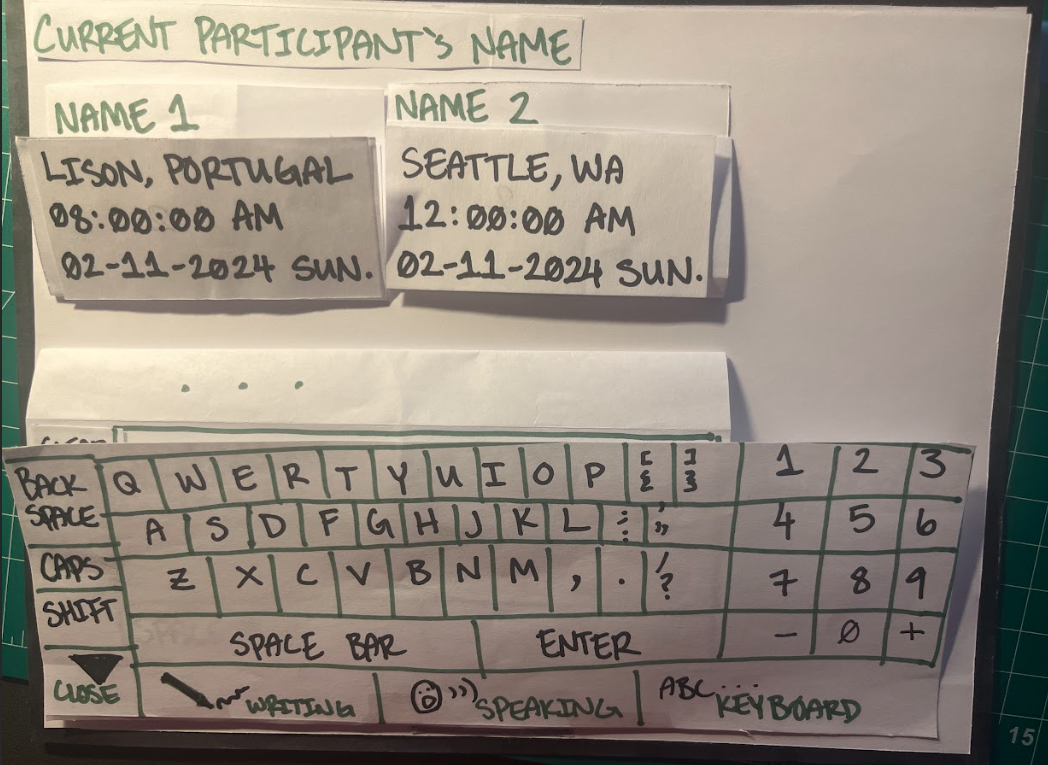 CURRENT PARTICIPANT'S NAME
NAME 1
NAME 2
LISON, PORTUGAL
08:00:00 AM
02-11-2024 SUN.
SEATTLE, WA
12:00:00 AM
02-11-2024 SUN.
. . .
BACK SPACE Q W E R T Y U I O P [ { ] } 1 2 3
A S D F G H J K L : ; ' " 4 5 6
CAPS Z X C V B N M , . / ? 7 8 9
SHIFT SPACE BAR ENTER - 0 +
CLOSE WRITING SPEAKING ABC... KEYBOARD
15